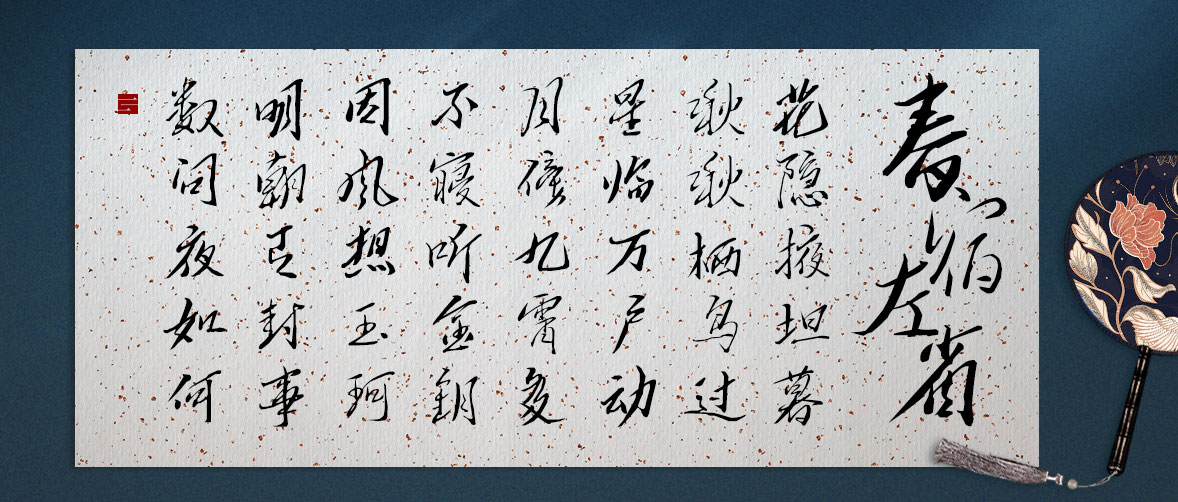 春宿左省
花隐掖坦暮
啾啾栖鸟过
星临万户动
月傍九霄多
不寝听金钥
因风想玉珂
明朝有封事
数问夜如何